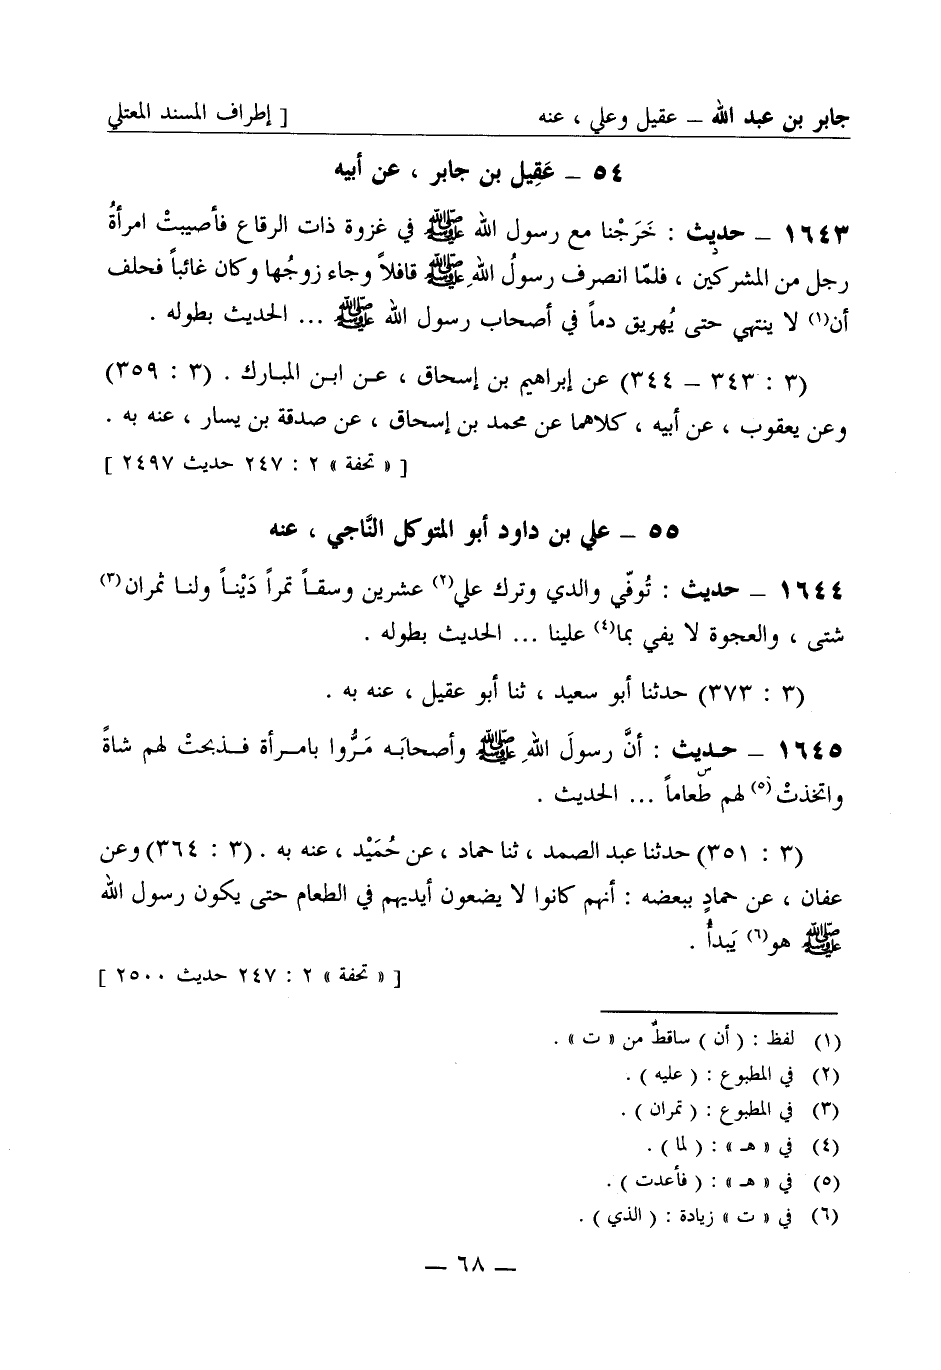 جابر بن عبد الله – عقيل وعلي ، عنه [ إطراف المسند المعتلي
٥٤ – عَقِيل بن جابر ، عن أبيه
١٦٤٣ – حديث : خَرَجْنا مع رسول الله ﷺ في غزوة ذات الرقاع فأصيبتْ امرأةُ
رجل من المشركين ، فلمّا انصرف رسولُ اللهِ ﷺ قافلاً وجاء زوجُها وكان غائباً فحلف
أن(١) لا ينتهي حتى يُهريق دماً في أصحاب رسول الله ﷺ ... الحديث بطوله .
(٣ : ٣٤٣ – ٣٤٤) عن إبراهيم بن إسحاق ، عـن ابـن المبارك . (٣ : ٣٥٩)
وعن يعقوب ، عن أبيه ، كلاهما عن محمد بن إسحاق ، عن صدقة بن يسار ، عنه به .
[ « تحفة » ٢ : ٢٤٧ حديث ٢٤٩٧ ]
٥٥ – علي بن داود أبو المتوكل النَّاجي ، عنه
١٦٤٤ – حديث : تُوفّي والدي وترك علي(٢) عشرين وسقـاً تمراً دَيْنـاً ولنـا ثمران(٣)
شتى ، والعجوة لا يفي بما(٤) علينا ... الحديث بطوله .
(٣ : ٣٧٣) حدثنا أبو سعيد ، ثنا أبو عقيل ، عنه به .
١٦٤٥ – حـديث : أنَّ رسولَ اللهِ ﷺ وأصحابَـه مَـرُّوا بامـرأة فـذبحتْ لهم شاةً
واتخذتْ(٥) لهم طعاماً ... الحديث .
(٣ : ٣٥١) حدثنا عبد الصمد ، ثنا حماد ، عن حُمَيْد ، عنه به . (٣ : ٣٦٤) وعن
عفان ، عن حمادٍ ببعضه : أنهم كانوا لا يضعون أيديهم في الطعام حتى يكون رسول الله
ﷺ هو(٦) يَبدأُ .
[ « تحفة » ٢ : ٢٤٧ حديث ٢٥٠٠ ]
(١) لفظ : ( أن ) ساقطٌ من « ت » .
(٢) في المطبوع : ( عليه ) .
(٣) في المطبوع : ( تمران ) .
(٤) في « هـ » : ( لما ) .
(٥) في « هـ » : ( فأعدت ) .
(٦) في « ت » زيادة : ( الذي ) .
– ٦٨ –